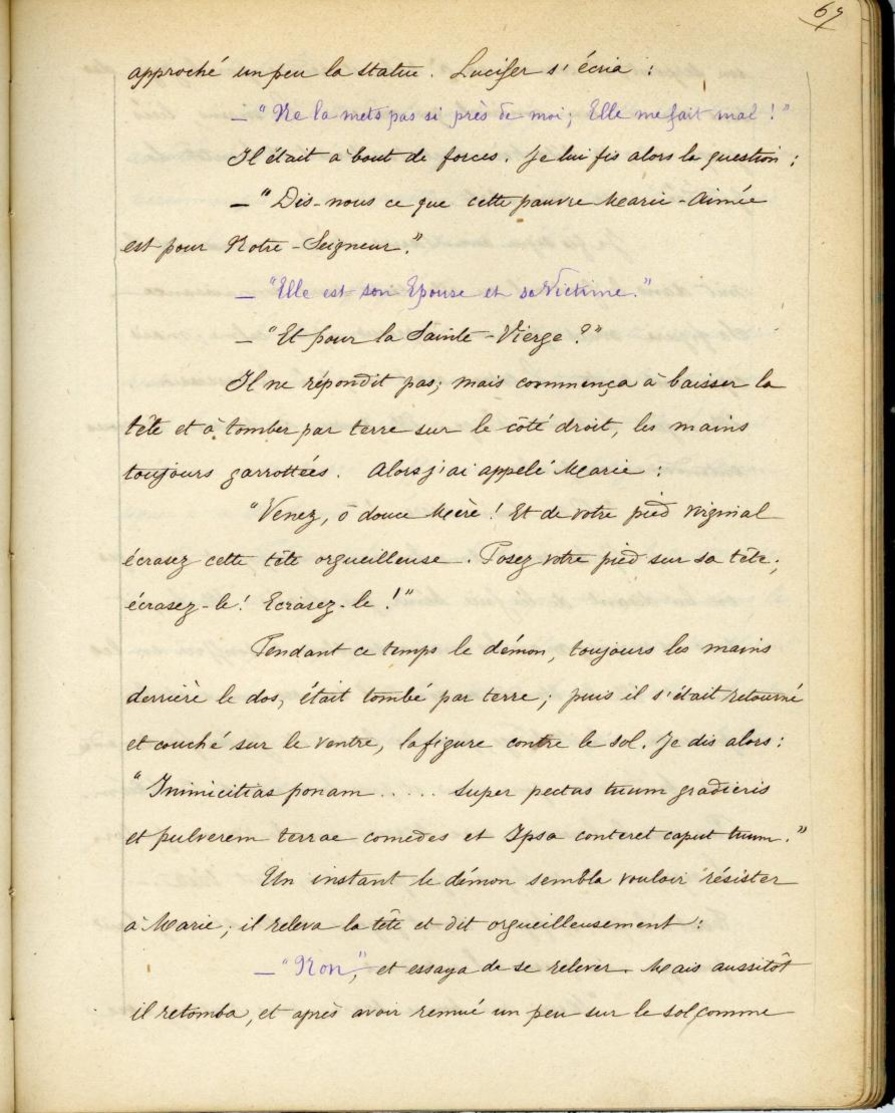 69
approché un peu la statue. Lucifer s'écria :
— "Ne la mets pas si près de moi; Elle me fait mal !"
Il était à bout de forces. Je lui fis alors la question :
— "Dis-nous ce que cette pauvre Marie-Aimée
est pour Notre-Seigneur."
— "Elle est son Epouse et sa Victime."
— "Et pour la Sainte-Vierge ?"
Il ne répondit pas; mais commença à baisser la
tête et à tomber par terre sur le côté droit, les mains
toujours garrottées. Alors j'ai appelé Marie :
"Venez, ô douce Mère ! Et de votre pied virginal
écrasez cette tête orgueilleuse. Posez votre pied sur sa tête;
écrasez-le ! Ecrasez-le !"
Pendant ce temps le démon, toujours les mains
derrière le dos, était tombé par terre; puis il s'était retourné
et couché sur le ventre, la figure contre le sol. Je dis alors :
"Inimicitias ponam ..... super pectus tuum gradieris
et pulverem terrae comedes et Ipsa conteret caput tuum."
Un instant le démon sembla vouloir résister
à Marie; il releva la tête et dit orgueilleusement :
— "Non", et essaya de se relever. Mais aussitôt
il retomba, et après avoir remué un peu sur le sol, comme